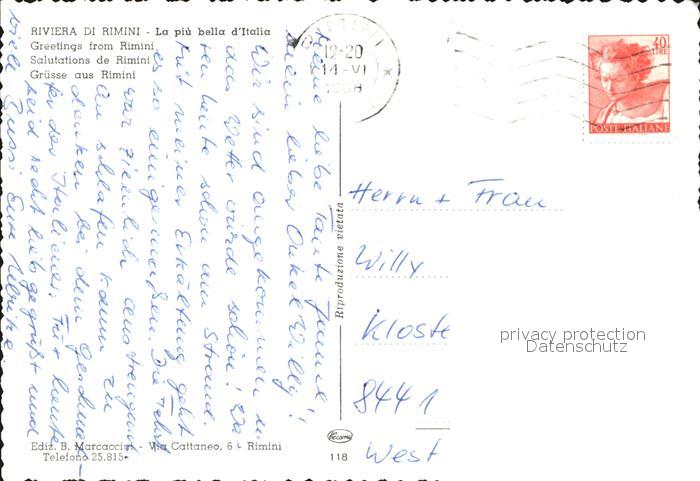 RIVIERA DI RIMINI - La più bella d'Italia
Greetings from Rimini
Salutations de Rimini
Grüsse aus Rimini
12-20
14-VI
1968
40
LIRE
POSTE ITALIANE
Meine liebe Tante
mein lieber Onkel Willy!
Wir sind angekommen u.
das Wetter wurde schön! Wa
ren heute schon am Strand.
Mit meiner Erkältung geht
es so einigermaßen. Die Fahrt
war ziemlich anstrengend
An schlafen kann zu
denken bei dem
für heute
seid recht lieb gegrüßt und
viele Bussi Eure
Herrn + Frau
Willy
Kloste
8441
West
privacy protection
Datenschutz
Riproduzione vietata
Ediz. B. Marcaccini - Via Cattaneo, 6 - Rimini
Telefono 25.815
118